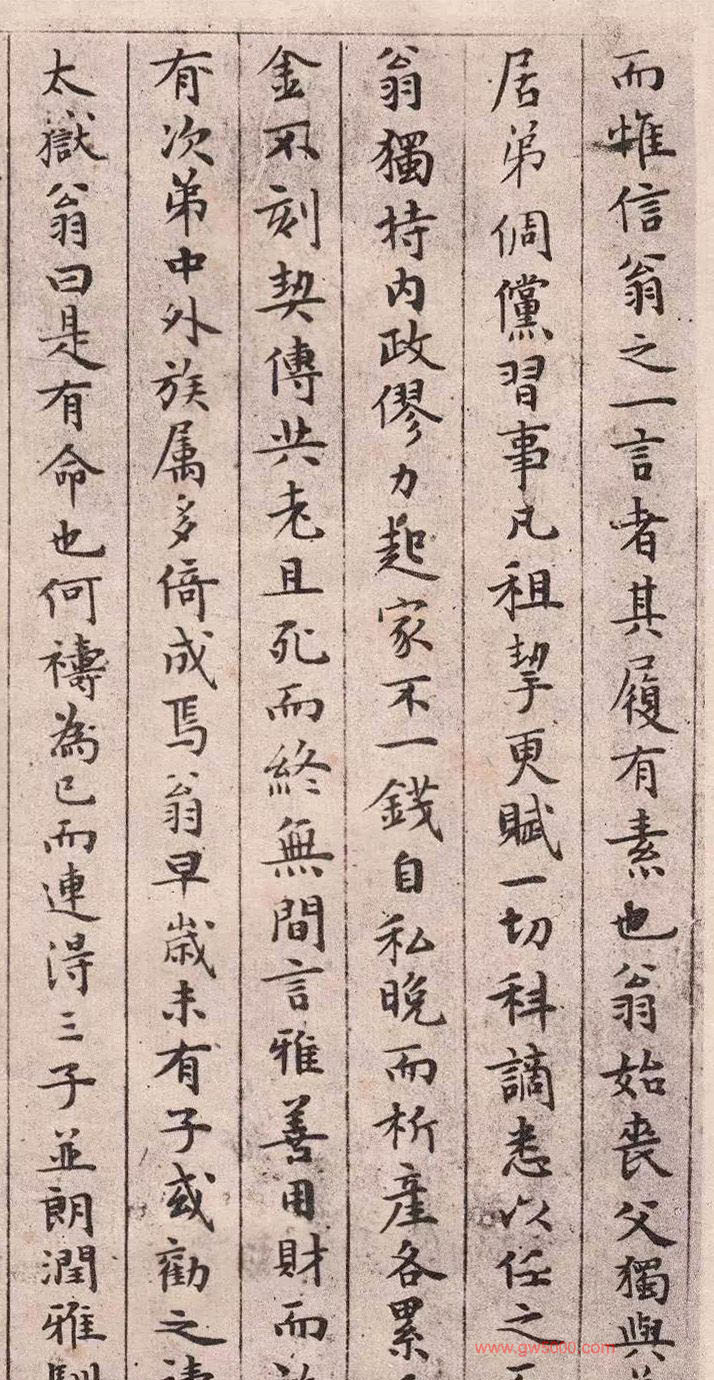 而惟信翁之一言者其履有素也翁始喪父獨與
居弟倜儻習事凡租挈更賦一切科謫悉以任之
翁獨持内政僇力起家不一錢自私晚而析產各累
金不刻契傳共老且死而終無間言雅善用財而
有次弟中外族属多倚成焉翁早歲未有子或勸之
太嶽翁曰是有命也何禱為已而連得三子並朗潤雅
www.gw5000.com